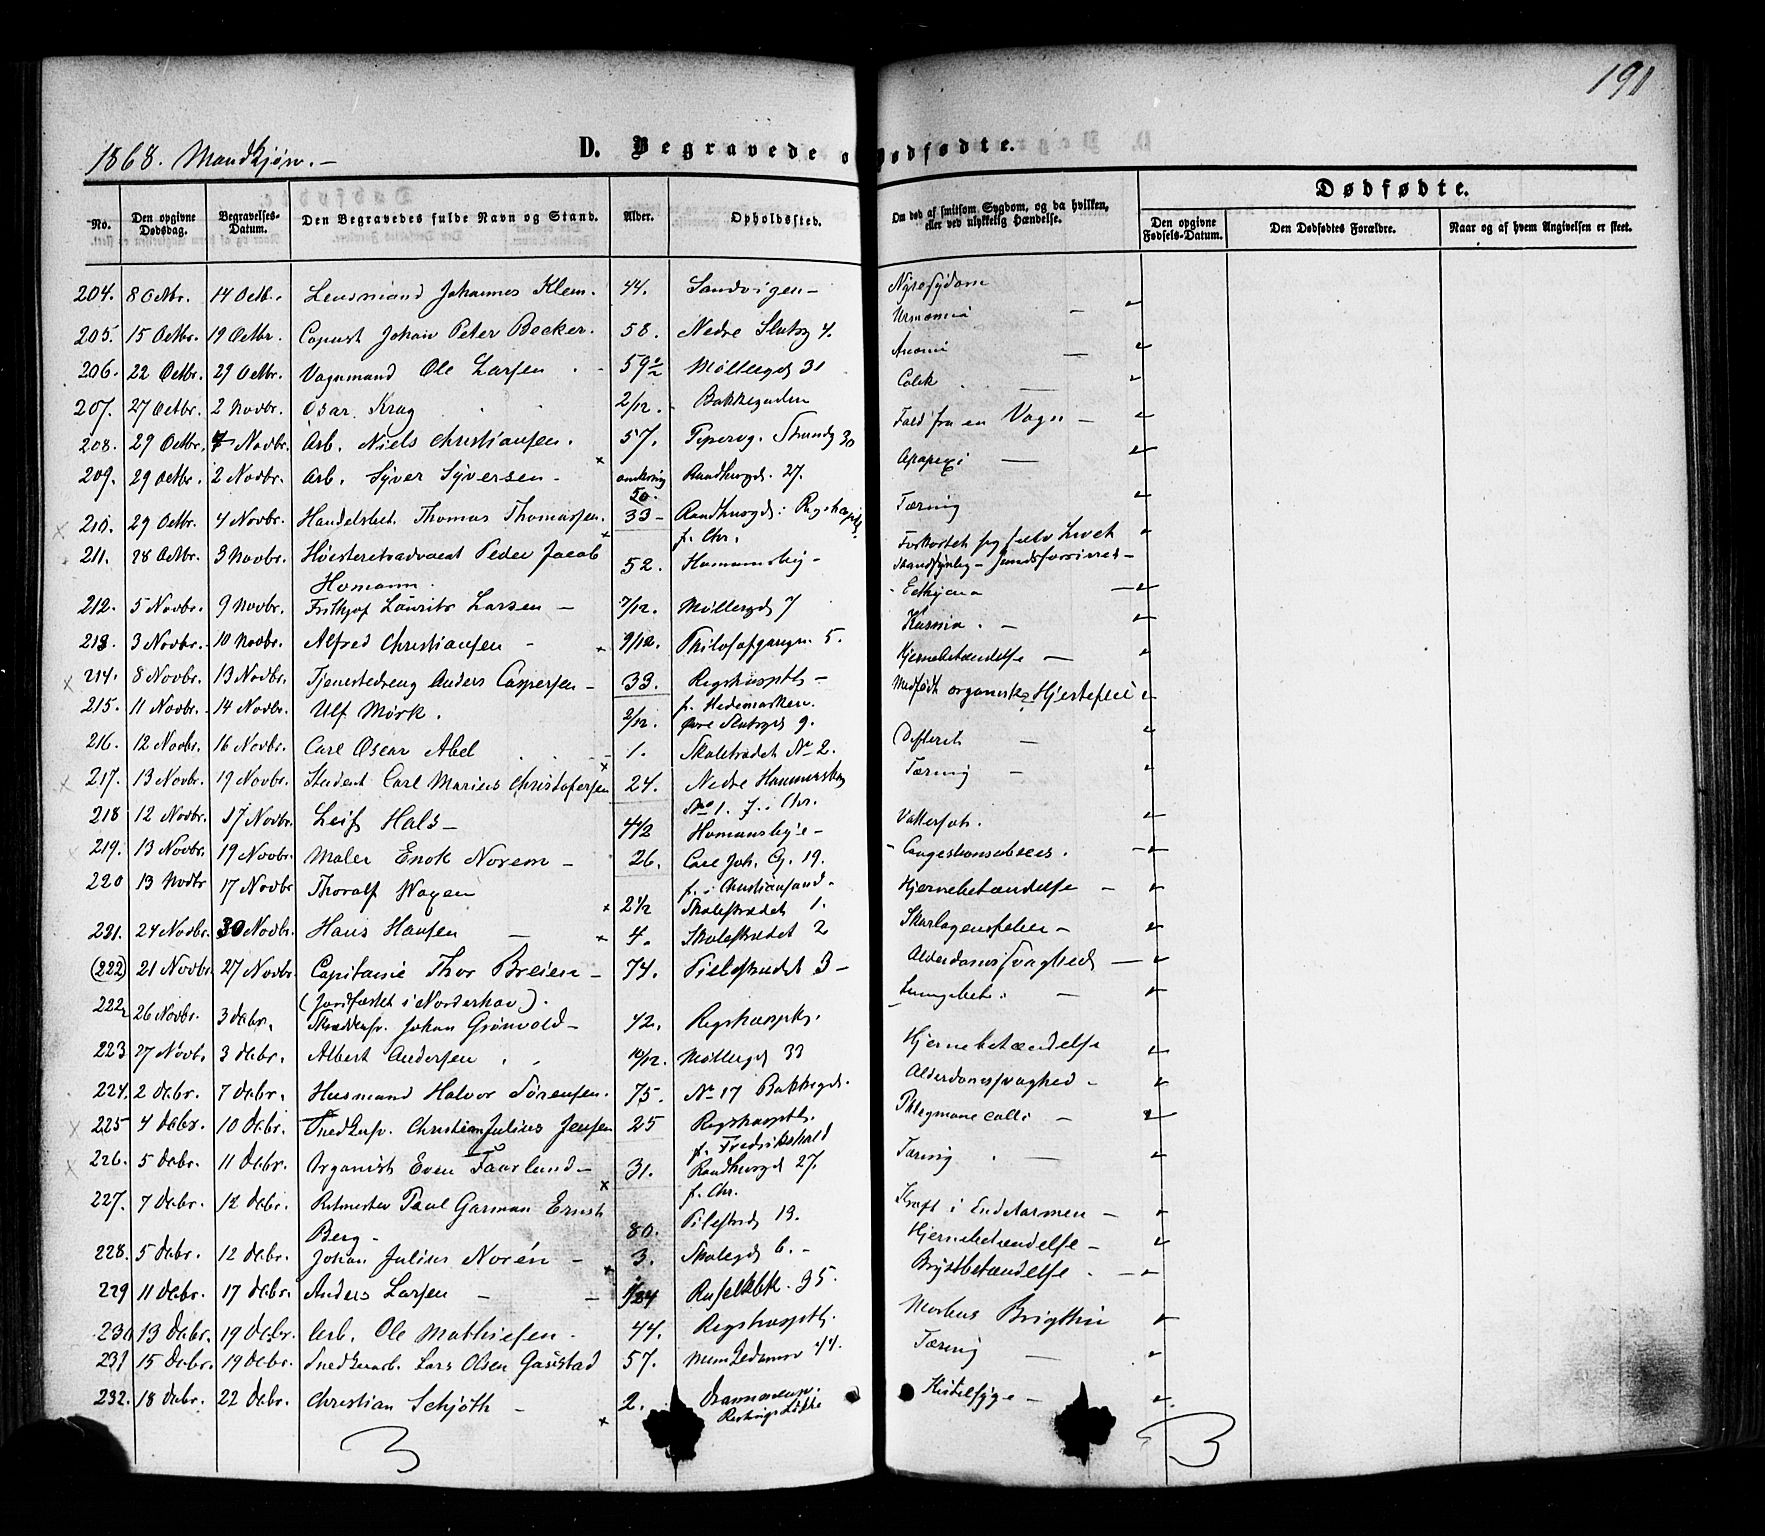 191
1868. Mandkjøn. -
D. Begravede o Dødfødte.
No.
Den opgivne Dødsdag.
Begravelses-Datum.
Den Begravedes fulde Navn og Stand.
Alder.
Opholdssted.
Om død af smitsom Sygdom, og da hvilken, eller ved ulykkelig Hændelse.
Dødfødte.
Den opgivne Fødsels-Datum.
Den Dødfødtes Forældre.
Naar og af hvem Angivelsen er skeet.
204. 8 Octbr. 14 Octb. Lensmand Johannes Klem. 44. Sandvigen - Nyresygdom
205. 15 Octbr. 19 Octbr. Johan Peter Becker. 58. Nedre Slotsg 4. Uræmia
206. 22 Octbr. 29 Octbr. Vognmand Ole Larsen 59 1/2 Møllergd 31
207. 27 Octbr. 2 Novbr. Oscar Krag 2/12. Bakkegaden Colik
208. 29 Octbr. 4 Novbr. Arb. Niels Christiansen. 57. Pipervg. Strandg 30 Fald fra en Vogn -
209. 29 Octbr. 2 Novbr. Arb. Syver Syversen - omkring 50. Raadhusgd. 27. Apopexi
210. 29 Octbr. 4 Novbr. Handelsbet. Thomas Thomassen. 33 - Raadhusgd: Rigshospit. f. Chr. Tæring
211. 28 Octbr. 3 Novbr. Høiesteretsadvocat Peder Jacob Homann. 52. Homansby - Forkortet sig selv Livet sandsynlig -
212. 5 Novbr. 9 Novbr. Frithjof Laurits Larsen - 7/12. Møllergd 7
213. 3 Novbr. 10 Novbr. Alfred Christiansen - 9/12. Filosofgangen. 5.
214. 8 Novbr. 13 Novbr. Tjenestedreng Anders Caspersen - 33. Rigshosptl - f. Hedemarken. Hjernebetændelse
215. 11 Novbr. 14 Novbr. Ulf Mørk. 2/12. Øvre Slotsgd 9. Medfødt organisk Hjertefeil
216. 12 Novbr. 16 Novbr. Carl Oscar Abel 1. Skolestrædet No 2. Difterit
217. 13 Novbr. 19 Novbr. Student Carl Marius Christofersen 24. Nedre Hammersborg No 1. f. i Chr. Tæring
218 12 Novbr. 17 Novbr. Leif Hals - 4 1/2 Homansbye -
219. 13 Novbr. 19 Novbr. Maler Enok Norem - 26. Carl Joh. G. 19. f. i Christiansand. Congestionsabsces.
220 13 Novbr 17 Novbr Thoralf Wogen 2 1/2 Skolestrædet 1. Hjernebetændelse -
221. 24 Novbr. 30 Novbr. Hans Hansen 4. Skolestrædet 2 Skarlagensfeber -
(222) 21 Novbr. 27 Novbr. Capitaine Thor Breien - (jordfæstet i Norderhov). 74. Pilestrædet 3 - Alderdomssvaghed
222. 26 Novbr. 3 Debr. Skræddersv. Johan Grønvold - 42. Rigshosptl. Lungebet.
223 27 Novb. 3 Debr. Albert Andersen 10/12. Møllergd 33 Hjernebetændelse
224. 2 Debr. 7 Debr. Husmand Halvor Sørensen. 75. No 17 Bakkegd. Alderdomssvaghed -
225 4 Debr. 10 Debr. Snedkersv. Christian Julius Jensen 25 Rigshosptl. f. Fredrikshald Phlegmone colli -
226. 5 Debr. 11 Debr. Organist Even Faarlund - 31. Raadhusgd 27. f. Chr. Tæring
227. 7 Debr. 12 Debr. Ritmester Paul Garman Ernst Berg - 80. Pilestrd 19. Kræft i Endetarmen -
228. 5 Debr. 12 Debr. Johan Julius Norén - 3. Skolegd 6. - Hjernebetændelse -
229 11 Debr. 17 Debr. Anders Larsen - 35. Brystbetændelse
230. 13 Debr. 19 Debr. Arb. Ole Mathiesen. 44. Rigshosptl. Morbus Brigthii
231 15 Debr. 19 Debr. Snedkerarb. Lars Olsen Gaustad 57. Munkedamsv 44. Tæring
232. 18 Debr. 22 Debr. Christian Schjøth - 2. Drammensv. Kirtelsyge -
3 3